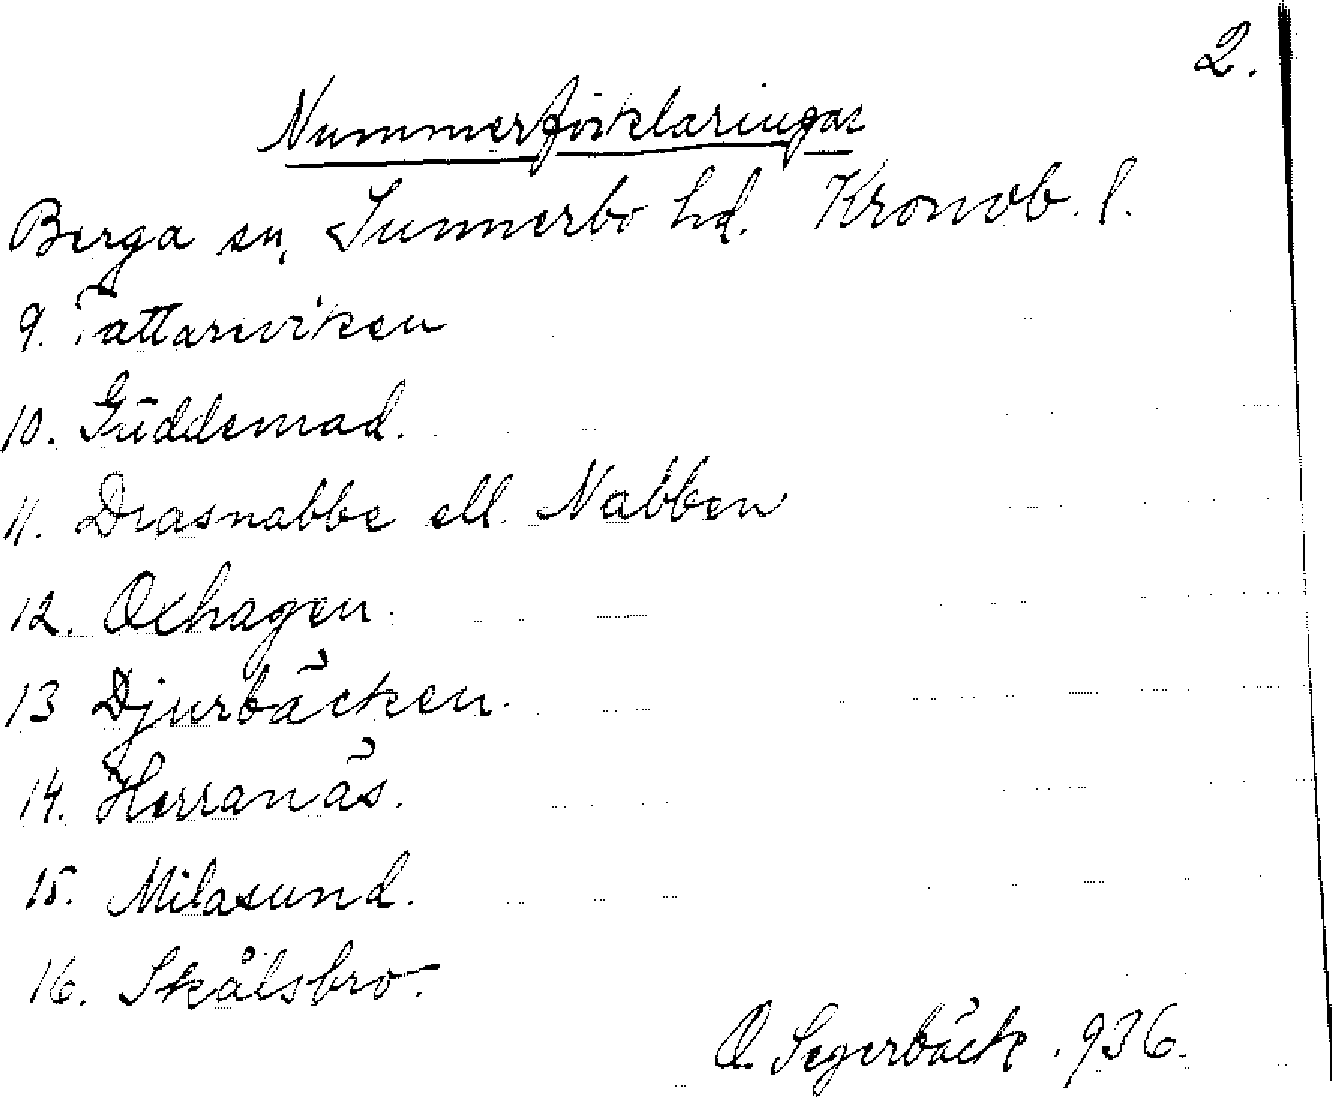 2.
Nummerförklaringar
Berga sn, Sunnerbo hd. Kronob. l.
9. Tattareviken
10. Guddemad.
11. Drasnabbe ell. Nabben
12. Oxhagen.
13 Djurbäcken.
14. Herranäs.
15. Milasund.
16. Skålsbro.
O. Segerbäck. 936.